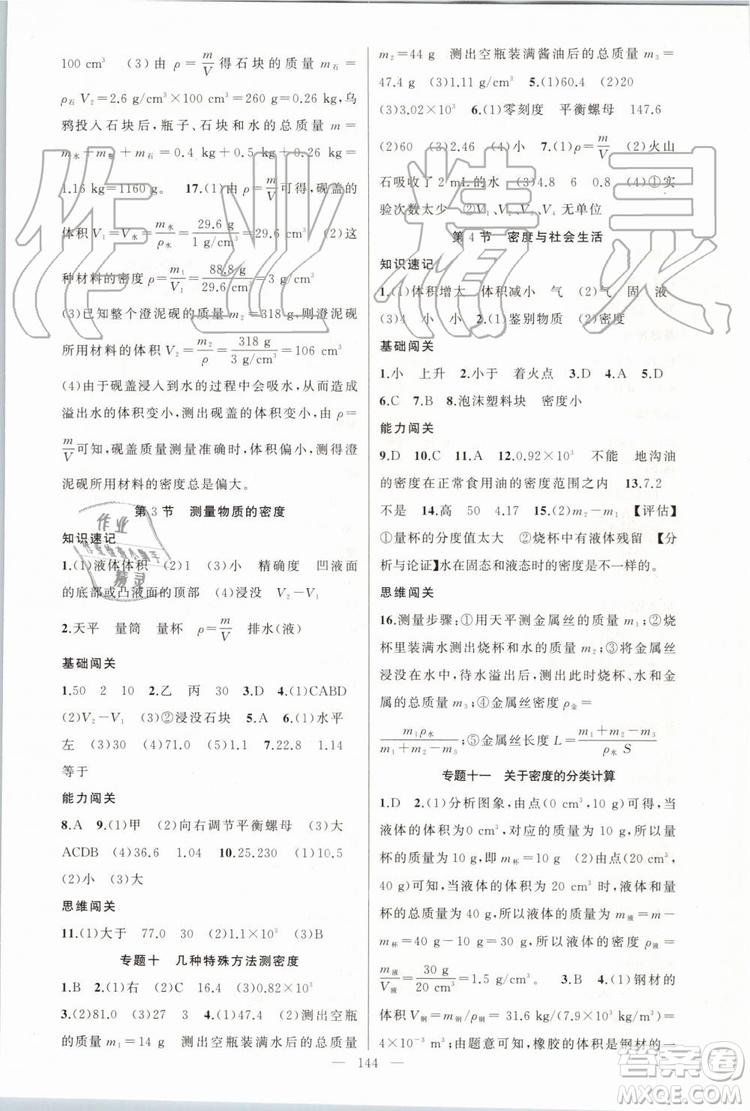 100 cm³　(3)由 ρ=m/V 得石块的质量 m石=
ρ石 V₂=2.6 g/cm³×100 cm³=260 g=0.26 kg,乌
鸦投入石块后,瓶子、石块和水的总质量 m=
m水+m瓶+m石=0.4 kg+0.5 kg+0.26 kg=
1.16 kg=1160 g.　17.(1)由 ρ=m/V 可得,砚盖的
体积 V=V水=m水/ρ水=29.6 g/1 g/cm³=29.6 cm³　(2)这
种材料的密度 ρ=m₁/V=88.8 g/29.6 cm³=3 g/cm³
(3)已知整个澄泥砚的质量 m₂=318 g,则澄泥砚
所用材料的体积 V₂=m₂/ρ=318 g/3 g/cm³=106 cm³
(4)由于砚盖浸入到水的过程中会吸水,所以导致
溢出水的体积变小,测出砚盖的体积变小,由 ρ=
m/V可知,砚盖质量测量准确,体积偏小,测得澄
泥砚所用材料的密度总是偏大。
第3节　测量物质的密度
知识速记
1.(1)液体体积　(2)1　(3)小　精确度　凹液面
的底部或凸液面的顶部　(4)浸没　V₂－V₁
2.天平　量筒　量杯　ρ=m/V　排水(液)
基础闯关
1.50　2　10　2.乙　丙　30　3.D　4.(1)CABD
(2)V₂－V₁　(3)②浸没石块　5.A　6.(1)水平
左　(2)71.0　(3)60　(5)1.1　7.22.8　1.14
等于
能力闯关
8.A　9.(1)甲　(2)向右调节平衡螺母　(3)大
ACDB　(4)36.6　1.04　10.25.230　(1)10.5
(2)小　(3)大
思维闯关
11.(1)大于　77.0　30　(2)1.1×10³　(3)B
专题十　几种特殊方法测密度
1.B　2.(1)右　(2)C　16.4　(3)0.92×10³
3.(2)81.0　(3)27　3　4.(1)47.4　(2)测出空瓶
的质量 m₁=14 g　测出空瓶装满水后的总质量
m₂=44 g　测出空瓶装满酱油后的总质量 m₃=
47.4 g　(3)1.11 g/cm³　5.(1)60.4　(2)20
(3)3.02×10³　6.(1)零刻度　平衡螺母　147.6
(2)60　(3)2.46　(4)小　7.(1)ρ=m/V　(2)火山
石吸收了 2 mL的水　(3)8　6　0.8　(4)①实
验次数太少　②V₁、V₂、V₃、V₄无单位
第4节　密度与社会生活
知识速记
1.(1)体积增大　体积减小　气　(2)气　固　液
(3)4　小　小　2.(1)鉴别物质　(2)密度
基础闯关
1.小　上升　2.小于　着火点　3.D　4.A　5.D
6.C　7.B　8.泡沫塑料块　密度小
能力闯关
9.D　10.C　11.A　12.0.92×10³　不能　地沟油
的密度在正常食用油的密度范围之内　13.7.2
不是　14.高　50　4.17　15.(2)m₂－m₁　【评估】
①量杯的分度值太大　②烧杯中有液体残留　【分
析与论证】水在固态和液态时的密度是不一样的。
思维闯关
16.测量步骤:①用天平测金属丝的质量 m₁;②烧
杯里装满水测出烧杯和水的质量 m₂;③将金属丝
浸没在水中,待水溢出后,测出此时烧杯、水和金
属的总质量 m₃;④金属丝密度 ρ金=
m₁ρ水/m₁+m₂－m₃;⑤金属丝长度 L=m₁+m₂－m₃/ρ水 S
专题十一　关于密度的分类计算
1.D　2.(1)分析图象,由点(0 cm³)可得,当
液体的体积为0 cm³,对应的质量为10 g,所以量
杯的质量为10 g,即 m杯=10 g　(2)由点(20 cm³,
40 g)可知,当液体的体积为20 cm³,液体和量
杯的总质量为 40 g,所以液体质量为 m液=m－
m杯=40 g－10 g=30 g,所以液体的密度 ρ液=
m液/V液=30 g/20 cm³=1.5 g/cm³.　3.B　4.(1)钢材的
体积 V钢=m钢/ρ钢=31.6 kg/(7.9×10³ kg/m³)=
4×10⁻³ m³;由题意可知,橡胶的体积是钢材的一
144
作业精灵
答案圈
MXQE.COM